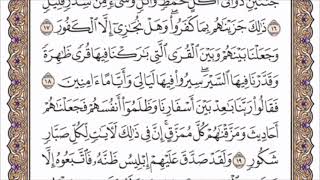 جَنَّتَيْنِ ذَوَاتَىْ أُكُلٍ خَمْطٍ وَأَثْلٍ وَشَىْءٍ مِّن سِدْرٍ قَلِيلٍ
١٦ ذَٰلِكَ جَزَيْنَٰهُم بِمَا كَفَرُوا۟ ۖ وَهَلْ نُجَٰزِىٓ إِلَّا ٱلْكَفُورَ ١٧
وَجَعَلْنَا بَيْنَهُمْ وَبَيْنَ ٱلْقُرَى ٱلَّتِى بَٰرَكْنَا فِيهَا قُرًى ظَٰهِرَةً
وَقَدَّرْنَا فِيهَا ٱلسَّيْرَ ۖ سِيرُوا۟ فِيهَا لَيَالِىَ وَأَيَّامًا ءَامِنِينَ ١٨
فَقَالُوا۟ رَبَّنَا بَٰعِدْ بَيْنَ أَسْفَارِنَا وَظَلَمُوٓا۟ أَنفُسَهُمْ فَجَعَلْنَٰهُمْ
أَحَادِيثَ وَمَزَّقْنَٰهُمْ كُلَّ مُمَزَّقٍ ۚ إِنَّ فِى ذَٰلِكَ لَءَايَٰتٍ لِّكُلِّ صَبَّارٍ
شَكُورٍ ١٩ وَلَقَدْ صَدَّقَ عَلَيْهِمْ إِبْلِيسُ ظَنَّهُۥ فَٱتَّبَعُوهُ إِلَّا